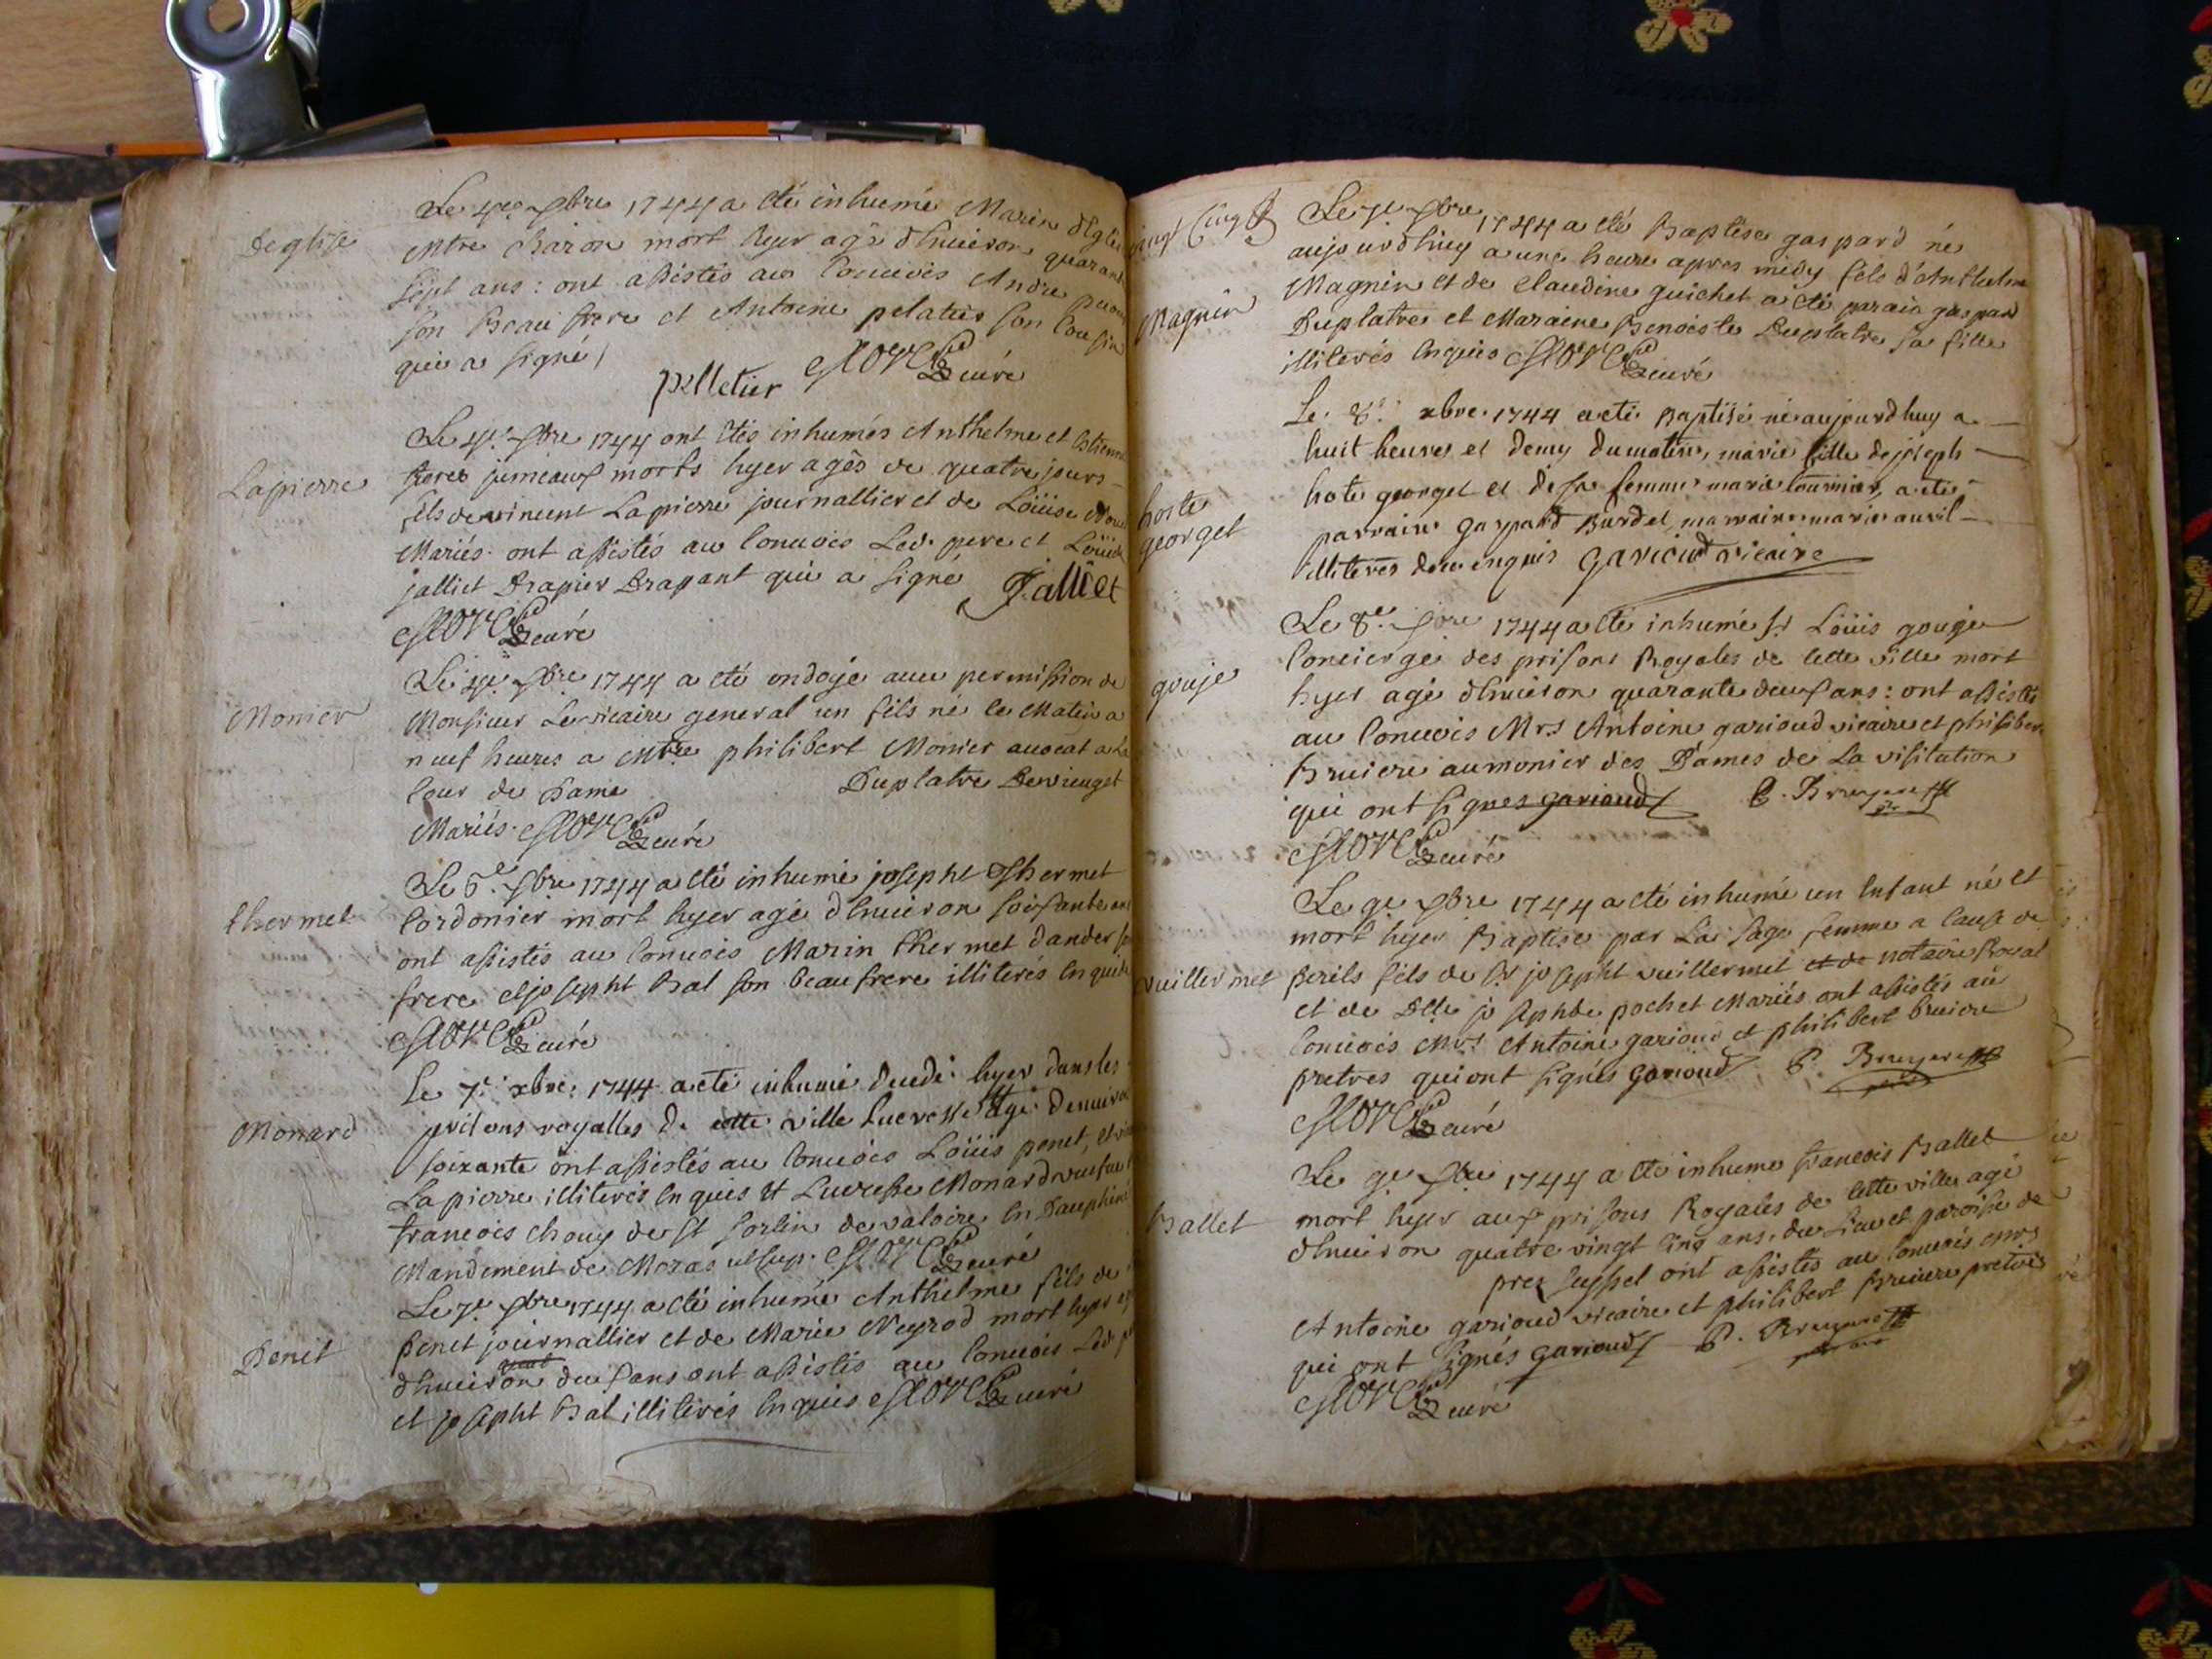 Deglise
Le 4e Xbre 1744 a été inhumé Marin dEglise
Mtre Charon mort hyer agé dhuiron quarante
sept ans: ont assistés au Conuois Andre
son Beau frere et Antoine pelatier son Cousin
qui a signé /
pelletier curé
Lapierre
Le 4e Xbre 1744 ont étés inhumés Anthelme et Estienne
freres jumeaux morts hyer agés de quatre jours
fils de vincent Lapierre journallier et de Loüise
Mariés. ont assistés au Conuois Led. pere et Loüis
jalliet Drapier Drapant qui a signé Jalliet
curé
Monier
Le 4e Xbre 1744 a été ondoyé auec permission de
Monsieur Le vicaire general un fils né le Matin a
neuf heures a Mtre philibert Monier auocat a La
Cour de Dame Duplatre De vieuget
Mariés. curé
thermet
Le 5e Xbre 1744 a été inhumé josepht Thermet
Cordonier mort hyer agé dEnuiron soisante ans
ont assistés au Conuois Marin thermet dander son
frere et josepht Bal son beau frere illiterés Enquis
curé
Monard
Le 7e xbre 1744 a eté inhumé decedé hyer dans les
prisons royalles de cette ville Lucresse agé denuiron
soixante ont assistés au Conuois Loüis penet, et
Lapierre illiterés Enquis et Lucresse Monard veufue
francois Chouy de St sorlin de valoire En Dauphiné
Mandement de Moras ut sup. curé
Penet
Le 7e Xbre 1744 a été inhumé Anthelme fils de
Penet journallier et de Marie Neyrod mort hyer agé
dEnuiron deux ans ont assistés au Conuois Led. pere
et josepht Bal illiterés Enquis curé
vingt Cinq
Magnin
Le 7e Xbre 1744 a été Baptise gaspard né
aujourdhuy a une heure apres midy fils d'Anthelme
Magnin et de Claudine guichet a été parain gaspard
Duplatre et Maraine Benoiste Duplatre sa fille
illiterés Enquis curé
hoste
georget
Le 8e xbre 1744 a eté Baptisé né aujourdhuy a
huit heures et demy du matin, marie fille de joseph
hote georget et de sa femme marie tournier, a eté
parrain gaspard Burdet, marraine marie auril
illiteres de ce enquis garioud vicaire
gouje
Le 8e Xbre 1744 a été inhumé sr Loüis gouje
Concierge des prisons Royales de Cette ville mort
hyer agé dEnuiron quarante deux ans: ont assistés
au Conuois Mrs Antoine garioud vicaire et philibert
Bruiere aumonier des Dames de La visitation
qui ont signes garioud P. Bruyere ptr
curé
vuillermet
Le 9e Xbre 1744 a été inhumé un Enfant né et
mort hyer Baptise par La sage femme a Cause de
perils fils de Sr josepht vuillermet et de notaire Royal
et de Dlle josephte pochet Mariés ont assistés au
Conuois Mrs Antoine garioud et philibert bruiere
pretres qui ont signés garioud P. Bruyere
curé
Ballet
Le 9e Xbre 1744 a été inhume francois Ballet
mort hyer aux prisons Royales de Cette ville agé
dEnuiron quatre vingt Cinq ans, du Lieu et paroisse de
prez seyssel ont assistés au Conuois Mrs
Antoine garioud vicaire et philibert Bruiere pretres
qui ont signés garioud P. Bruyere
curé